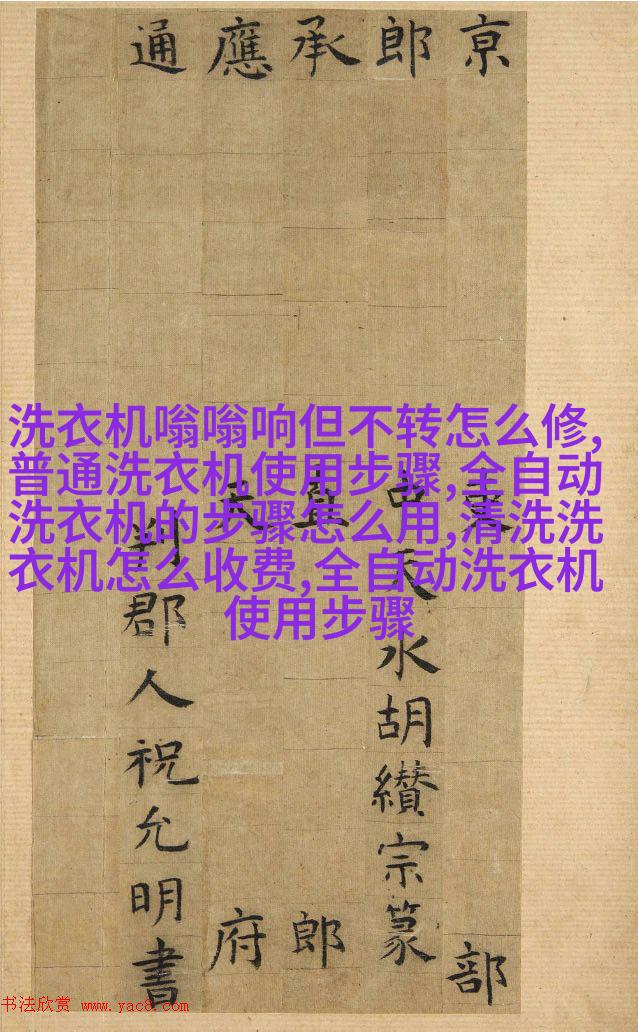 京部
郎天水胡纘宗篆
承直郎
應天府
通判郡人祝允明書
洗衣机嗡嗡响但不转怎么修,
普通洗衣机使用步骤,全自动
洗衣机的步骤怎么用,清洗洗
衣机怎么收费,全自动洗衣机
使用步骤
书法欣赏 www.yac8.com